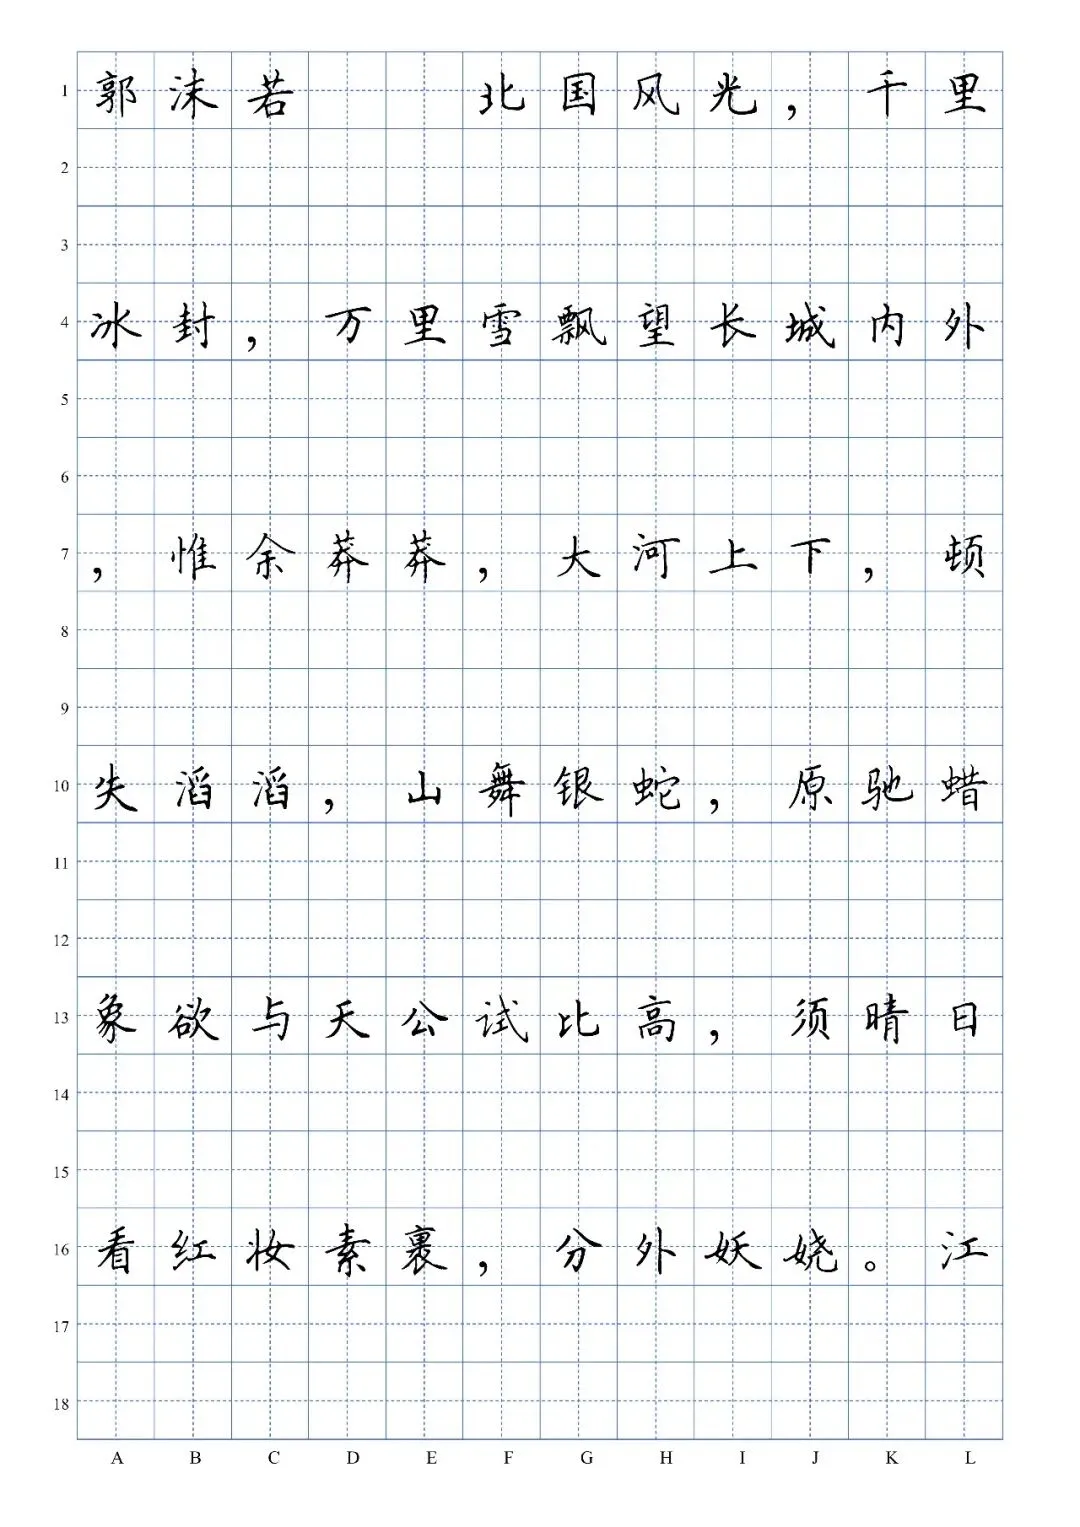 1 郭沫若 北国风光，千里
2
3
4 冰封，万里雪飘望长城内外
5
6
7 ，惟余莽莽，大河上下，顿
8
9
10 失滔滔，山舞银蛇，原驰蜡
11
12
13 象欲与天公试比高，须晴日
14
15
16 看红妆素裹，分外妖娆。江
17
18
A B C D E F G H I J K L